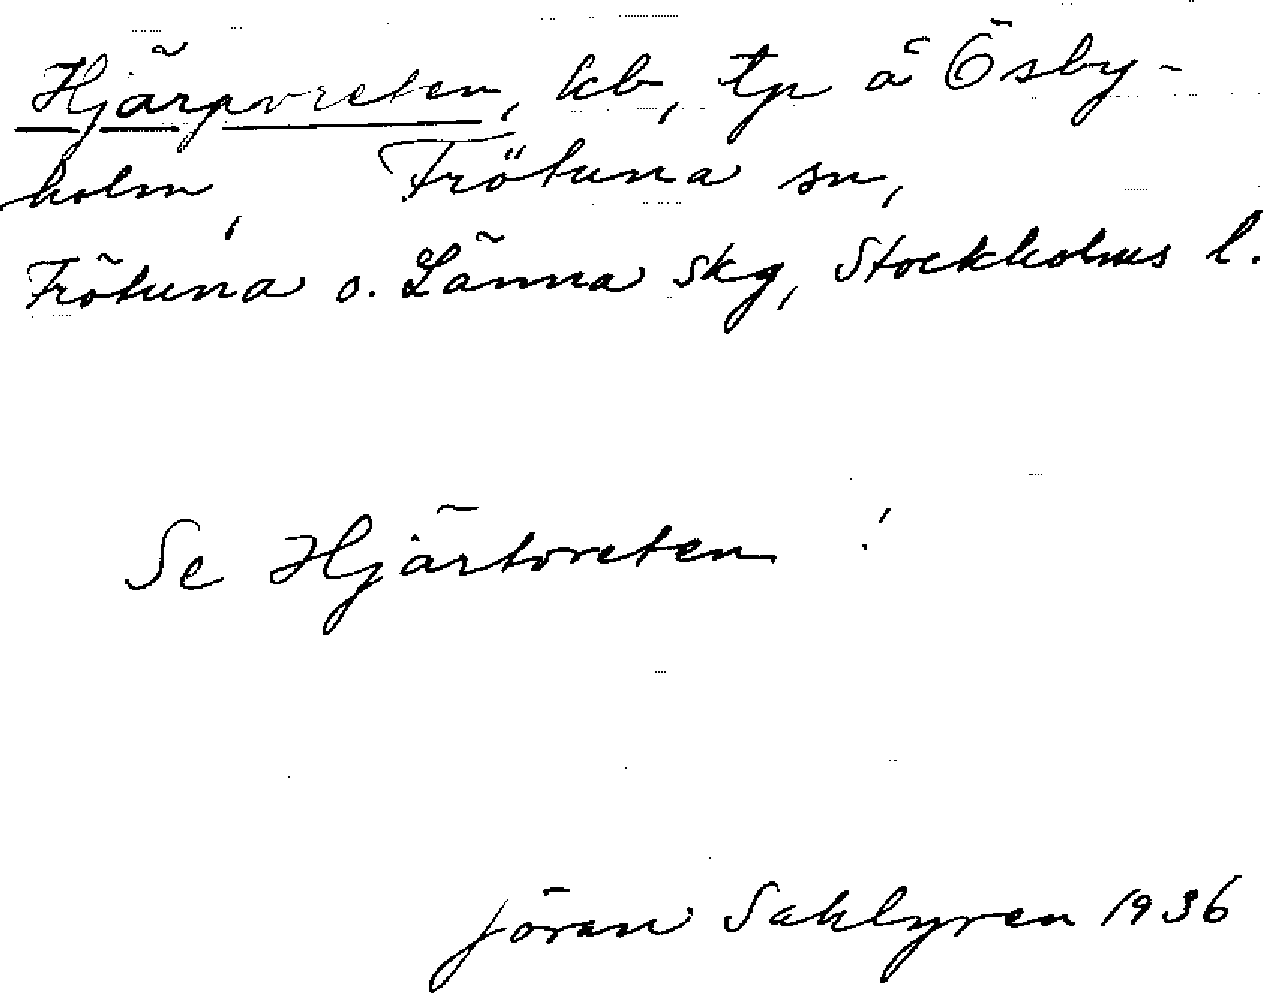 Hjärpvreten, kb, tp å Ösby-
holm, Frötuna sn,
Frötuna o. Länna skg, Stockholms l.
Se Hjärtvreten !
Jöran Sahlgren 1936